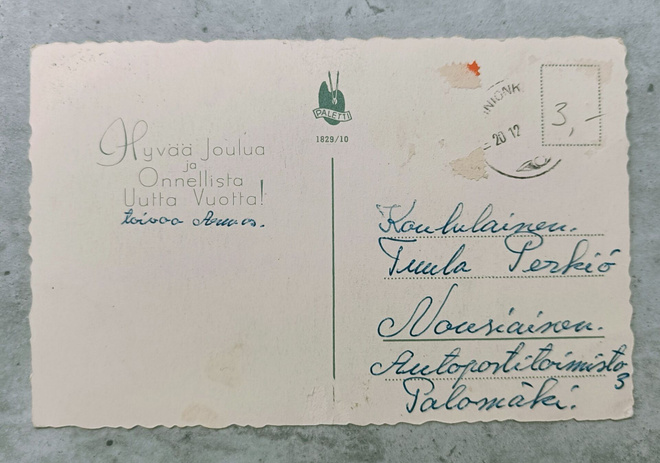 Hyvää Joulua
ja
Onnellista
Uutta Vuotta!
toivoo Annas.
PALETTI
1829/10
20 12
3,-
Koululainen.
Tuula Perkiö
Nousiainen.
Autopostitoimisto
3
Palomäki.